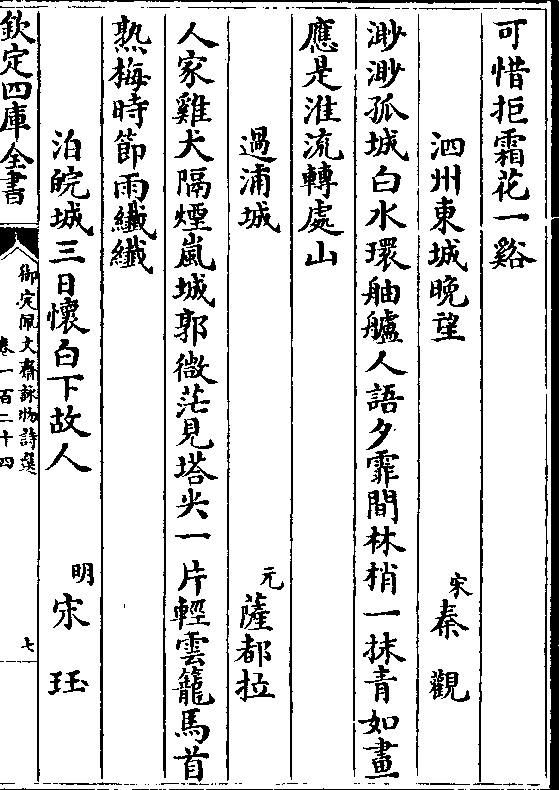 可惜拒霜花一谿
泗州東城晚望 宋 秦觀
渺渺孤城白水環舳艫人語夕霏間林梢一抹青如畫
應是淮流轉處山
過浦城 元 薩都拉
人家雞犬隔煙嵐城郭微茫見塔尖一片輕雲籠馬首
熟梅時節雨纖纖
泊皖城三日懷白下故人 明 宋珏
欽定四庫全書
御定佩文齋詠物詩選
卷一百二十四
七